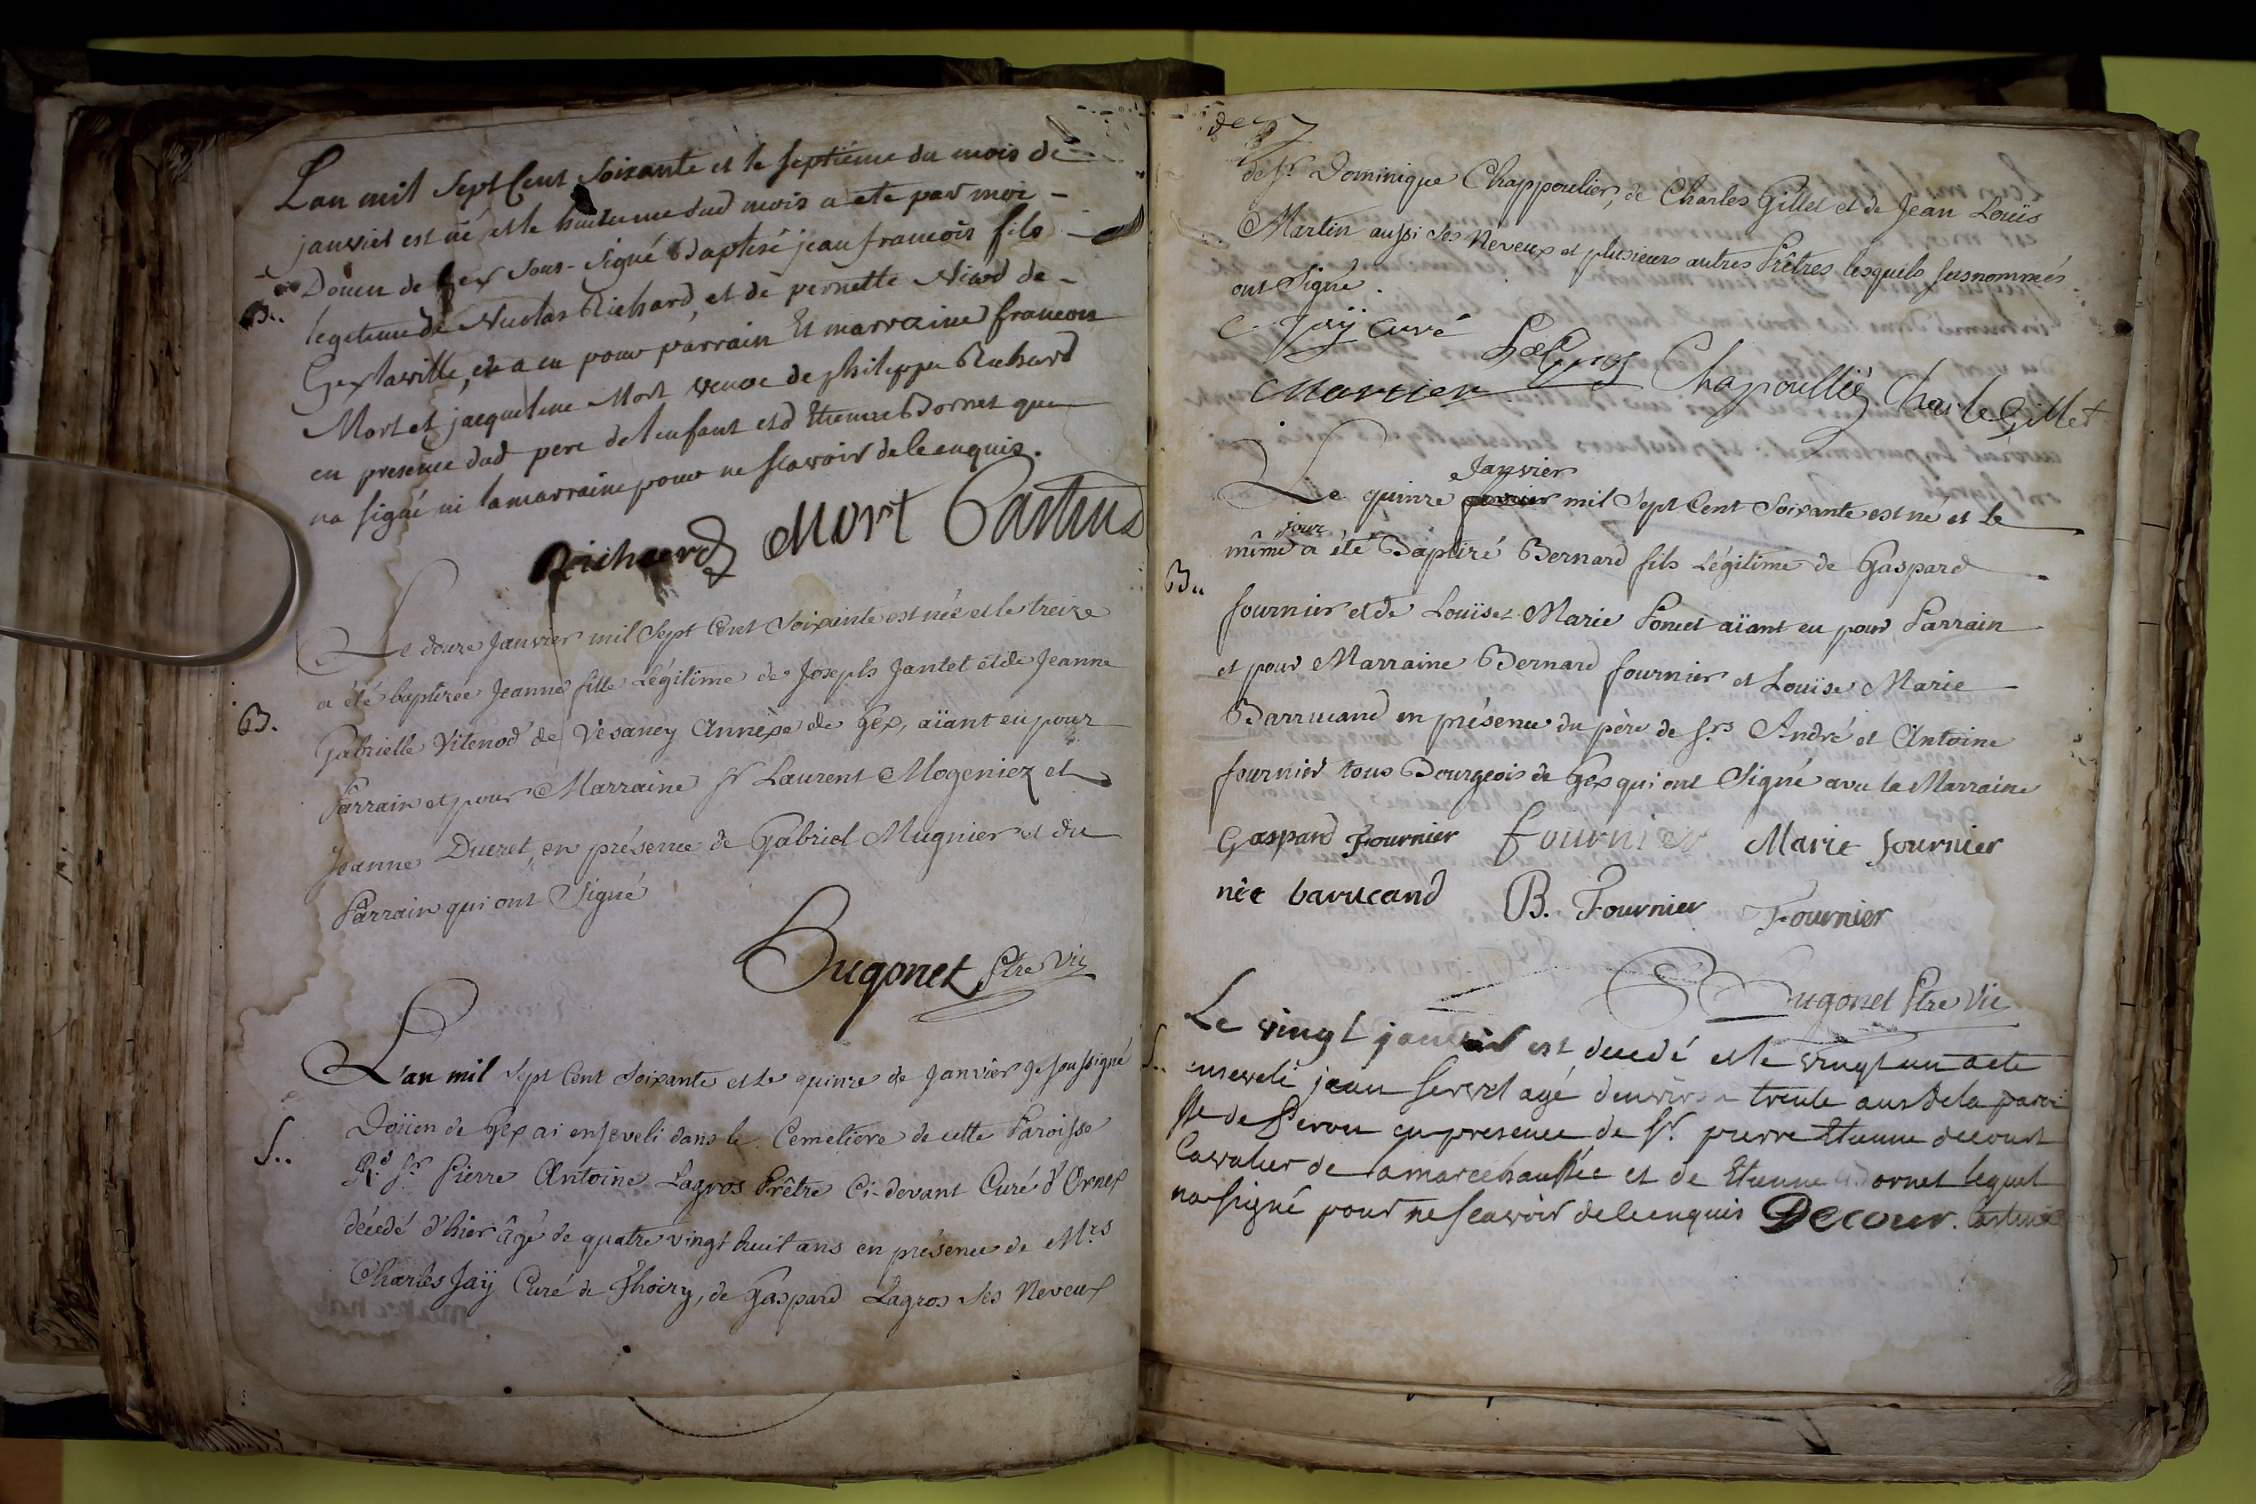 Lan mil Sept Cent Soixante et le septiême du mois de
janvier est né et le huitieme dud mois a ete par moi
Doïen de Gex sous-signé Baptisé jean francois fils
B..
legitime de Nicolas Richard, et de pernette Nicod de
Gex la ville, et a eu pour parrain Et marraine francois
Mort et jacqueline Mort veuve de philippe Richard
en presence dud pere de lenfant et d Etienne Bornet qui
na signé ni la marraine pour ne scavoir de ce enquis.
Richard Mort Castin
Le douze Janvier mil Sept Cent Soixante est née et le treize
a été baptizée Jeanne fille Légitime de Joseph Jantet et de Jeanne
B.
Gabrielle Vitenod de Vesancy Annèxe de Gex, aïant eu pour
Parrain et pour Marraine Sr Laurent Mogeniez et
Jeanne Ducret, en présence de Gabriel Mugnier et du
Parrain qui ont Signé
Hugonet Ptre Vic
L'an mil Sept Cent Soixante et le quinze de Janvier je soussigné
Doïien de Gex ai enseveli dans le Cemetiere de cette Paroisse
S..
Rd Sr Pierre Antoine Lagros Prêtre Ci-devant Curé d'Ornex
décedé d'hier âgé de quatre vingt huit ans en présence de Mrs
Charles Jaÿ Curé de Thoiry, de Gaspard Lagros ses Neveux
de Sr Dominique Chappoulier, de Charles Gillet et de Jean Louïs
Martin aussi ses Neveux et plusieurs autres Prêtres lesquels susnommés
ont Signé.
C. Jaÿ curé LaGros Chapoullié Charle Gillet
Martin
Janvier
Le quinze mil Sept Cent Soixante est né et le
jour
même a été Baptizé Bernard fils Légitime de Gaspard
B..
fournier et de Louïse Marie Poncet aïant eu pour Parrain
et pour Marraine Bernard fournier et Louïse Marie
Barrucand en présence du père de Srs André et Antoine
fournier tous Bourgeois de Gex qui ont Signé avec la Marraine
Gaspard Fournier fournier Marie fournier
née barucand B. Fournier Fournier
Hugonet Ptre Vic
Le vingt janvier est decedé et le vingt un a ete
S..
enseveli jean servet agé denviron trente ans de la paroi
sse de Peron en presence de Sr. pierre Etienne decourt
Cavalier de la marechaussée et de Etienne Bornet lequel
na signé pour ne scavoir de ce enquis Decour. Castin